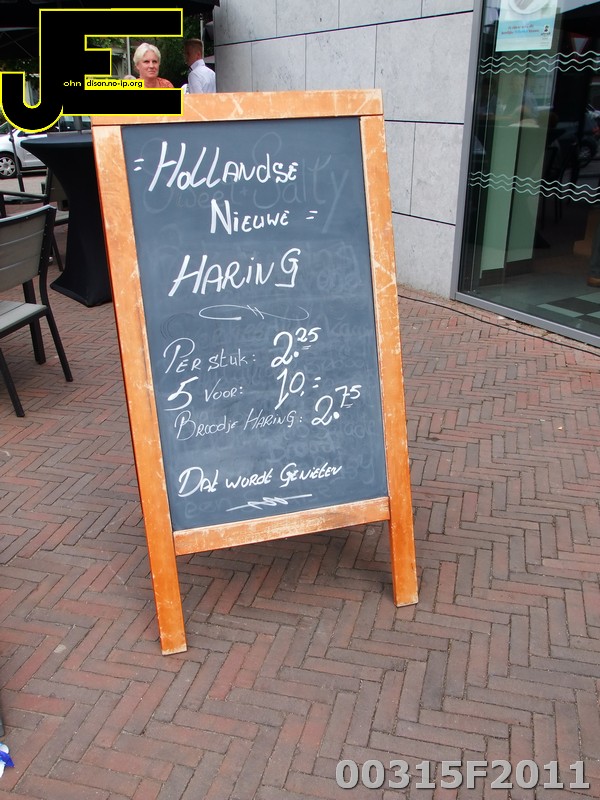 JE
ohn dison.no-ip.org
= Hollandse
Nieuwe =
Haring
Per stuk: 2.25
5 voor: 10,=
Broodje Haring: 2.75
Dat wordt Genieten
00315F2011